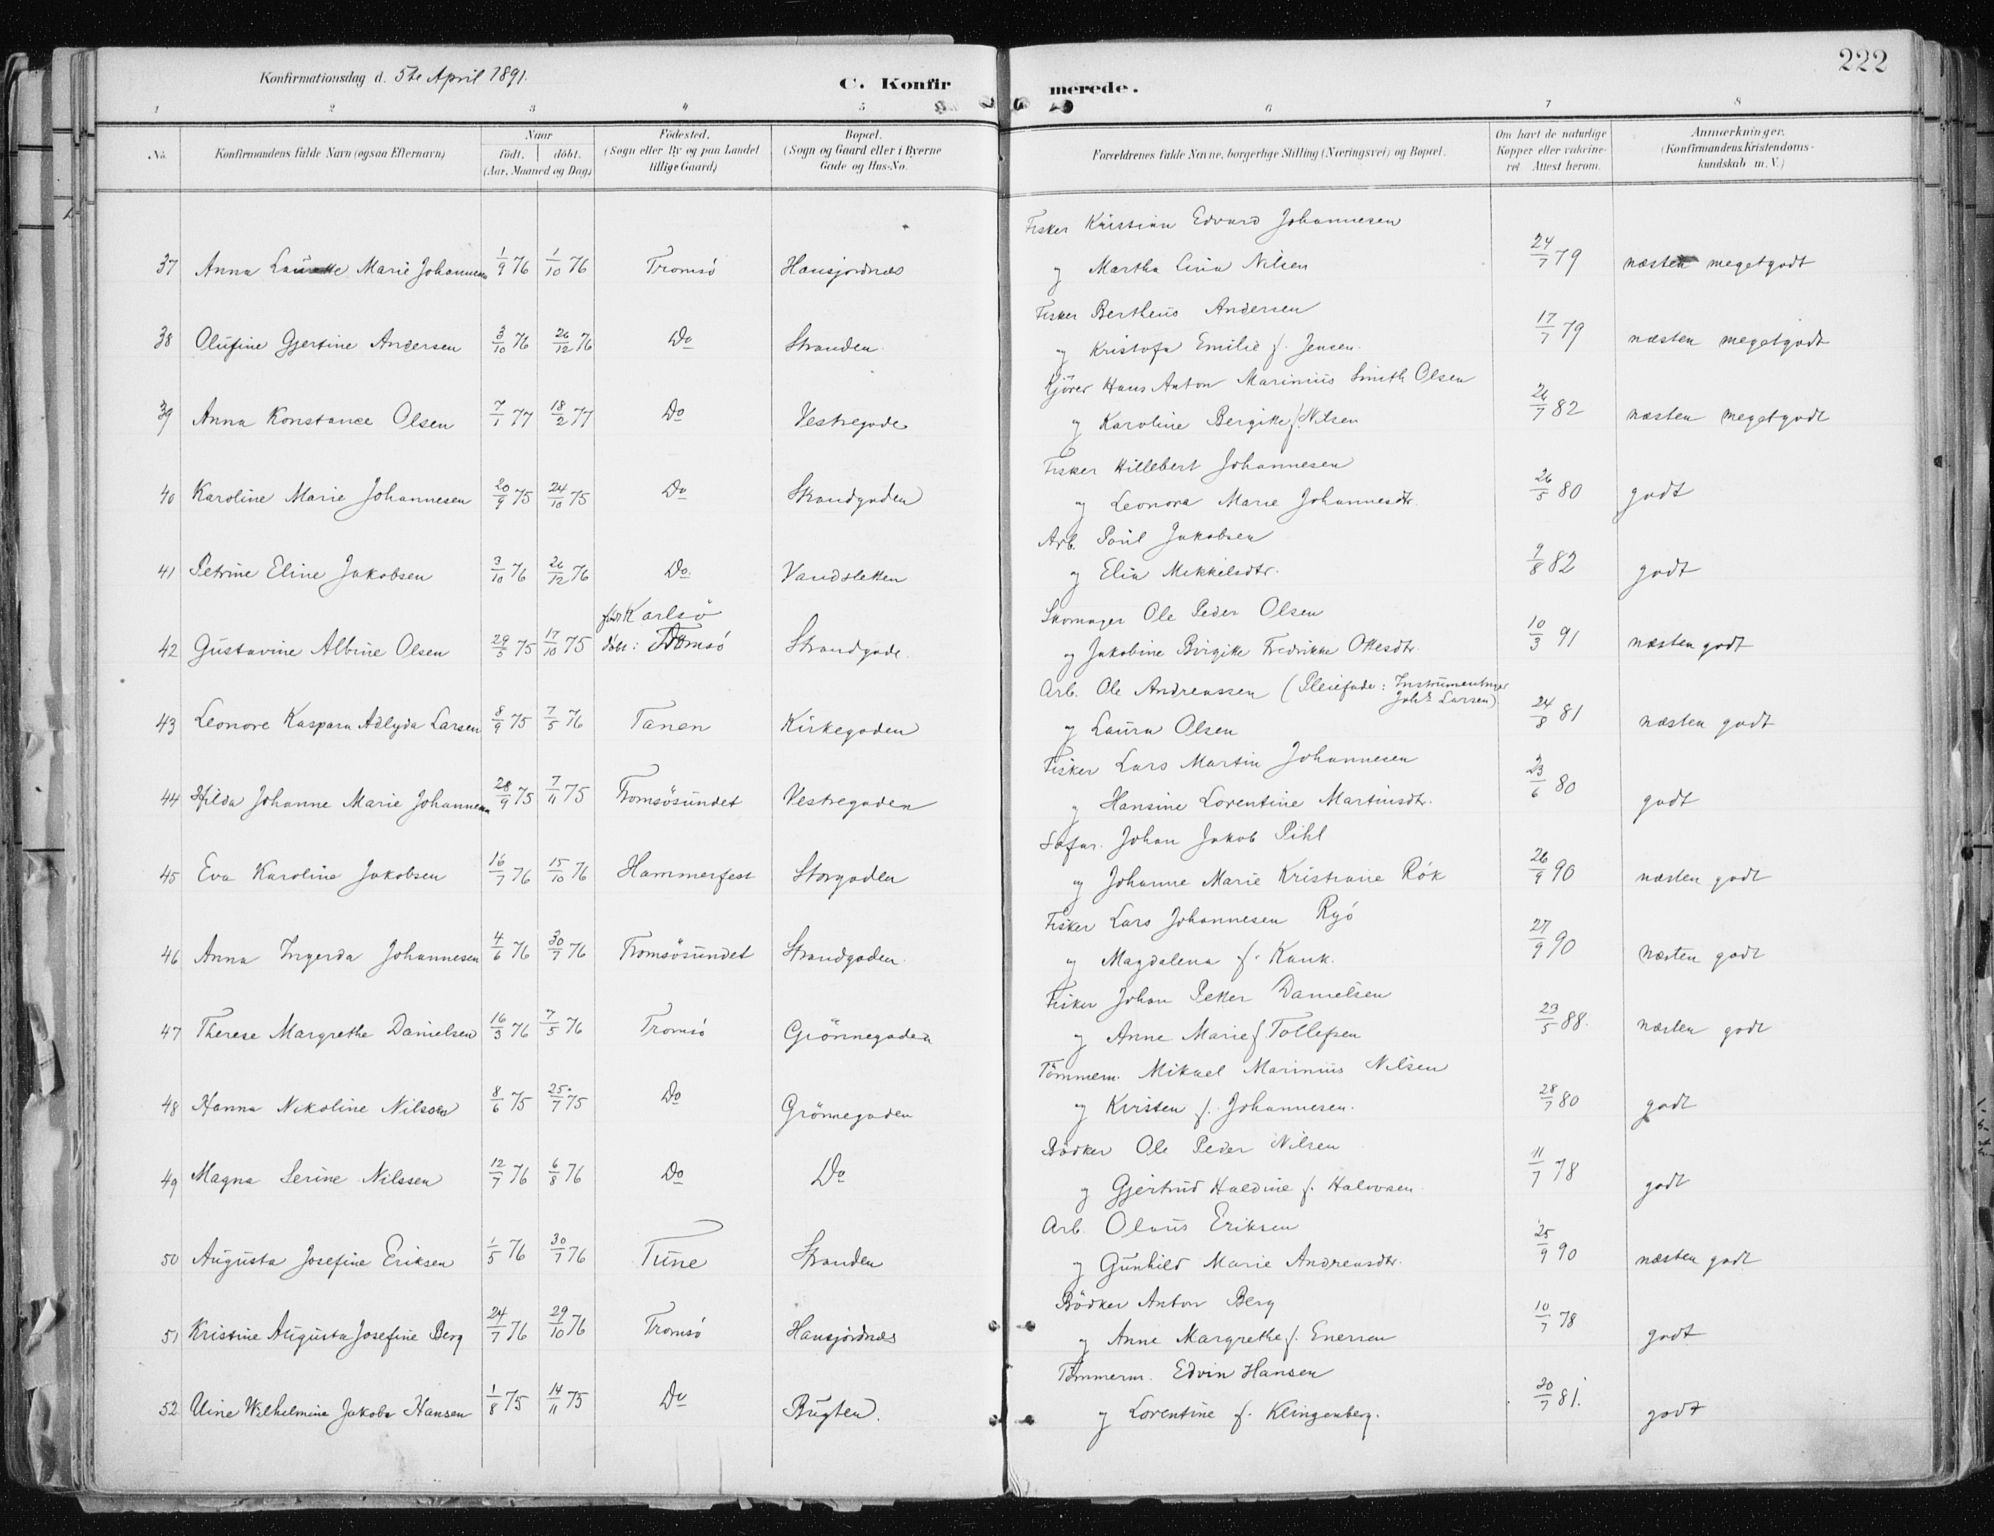 222
Konfirmationsdag d. 5te April 1891.
C. Konfirmerede.
1 2 3 4 5 6 7 8
No. Konfirmandens fulde Navn (ogsaa Efternavn) Naar født. døbt. (Aar, Maaned og Dag) Fødested. (Sogn eller By og paa Landet tillige Gaard) Bopæl. (Sogn og Gaard eller i Byerne Gade og Hus-No. Forældrenes fulde Navne, borgerlige Stilling (Næringsvei) og Bopæl. Om havt de naturlige Kopper eller vakcineret. Attest herom. Anmærkninger. (Konfirmandens Kristendomskundskab m. V.)
Fisker Kristian Edvard Johannesen
37 Anna Laurette Marie Johannesen 1/9 76 1/10 76 Tromsø Hansjordnæs og Martha Lina Nilsen 24/7 79 næsten megetgodt
Fisker Bertheus Andersen
38 Olufine Gjertine Andersen 3/10 76 26/12 76 Do Stranden og Kristofa Emilie f. Jensen. 17/7 79 næsten megetgodt
Kjører Hans Anton Marinius Smith Olsen
39 Anna Konstance Olsen 7/1 77 18/2 77 Do Vestregade og Karoline Bergitte f. Nilsen 26/7 82 næsten megetgodt
Fisker Hillebert Johannesen
40 Karoline Marie Johannesen 20/9 75 24/10 75 Do Strandgaden og Leonora Marie Johannesdtr. 26/5 80 godt
Arb. Paul Jakobsen
41 Petrine Eline Jakobsen 3/10 76 26/12 76 Do. Vandsletten og Elia Mikkelsdtr. 9/8 82 godt
født Karlsö Skomager Ole Peder Olsen
42 Gustavine Albine Olsen 29/5 75 17/10 75 döbt: Tromsö Strandgade og Jakobine Birgitte Fredrikke Ottesdtr. 10/3 91 næsten godt
Arb. Ole Andreassen (Pleiefader: Instrumentmager Johs Larsen)
43 Leonore Kaspara Adlyda Larsen 8/9 75 7/5 76 Tanen Kirkegaden og Laura Olsen 24/8 81 næsten godt
Fisker Lars Martin Johannesen
44 Hilda Johanne Marie Johannesen 28/9 75 7/11 75 Tromsösundet Vestregaden og Hansine Lorentine Martinsdtr. 23/6 80 godt
Söfar. Johan Jakob Pihl
45 Eva Karoline Jakobsen 16/7 76 15/10 76 Hammerfest Storgaden og Johanne Marie Kristiane Rök 26/9 90 næsten godt
Fisker Lars Johannesen Ryö
46 Anna Ingerda Johannesen 4/6 76 30/7 76 Tromsösundet Strandgaden og Magdalena f. Kank. 27/9 90 næsten godt
Fisker Johan Petter Danielsen
47 Therese Margrethe Danielsen 16/3 76 7/5 76 Tromsö Grönnegaden og Anne Marie f. Tollefsen 23/5 88. næsten godt
Tömmerm. Mikael Marinius Nilsen
48 Hanna Nikoline Nilssen 8/6 75 25/7 75 Do Grönnegaden og Kirsten f. Johannesen. 28/7 80 godt
Bödker Ole Peder Nilsen
49 Magna Serine Nilssen 12/7 76 6/8 76 Do Do og Gjertrud Haldine f. Halvorsen 11/7 78 godt
Arb. Olaus Eriksen
50 Augusta Josefine Eriksen 1/5 76 30/7 76 Tune Stranden og Gunhild Marie Andreasdtr. 25/9 90 næsten godt
Bödker Anton Berg
51 Kristine Augusta Josefine Berg 24/7 76 29/10 76 Tromsö Hansjordnæs og Anne Margrethe f. Enersen 10/7 78 godt
Tömmerm. Edvin Hansen
52 Uine Wilhelmine Jakobe Hansen 1/8 75 14/11 75 Do Bugten. og Lorentine f. Klingenberg. 20/7 81. godt